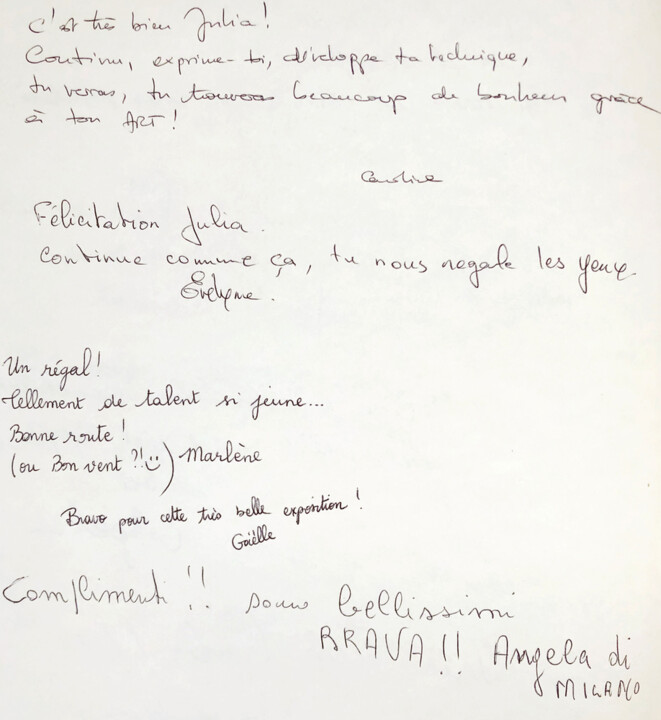 C'est très bien Julia!
Continu, exprime-toi, développe ta technique,
tu verras, tu trouveras beaucoup de bonheur grâce
à ton ART!
Caroline
Félicitation Julia.
Continue comme ça, tu nous regale les yeux.
Évelyne.
Un régal!
tellement de talent si jeune...
Bonne route!
(ou Bon vent ?!☺) Marlène
Bravo pour cette très belle exposition!
Gaëlle
Complimenti!! sono bellissimi
BRAVA!! Angela di
MILANO